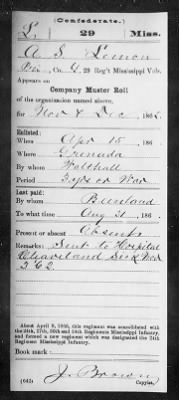 (Confederate.)
L. 29 Miss.
A. S. Lemon
Pvt., Co. G, 29 Reg't Mississippi Vols.
Appears on
Company Muster Roll
of the organization named above,
for Nov & Dec, 1862.
Enlisted:
When Apr 15, 186
Where Grenada
By whom Walthall
Period 3 yrs or War
Last paid:
By whom
To what time Aug 31, 186
Present or absent Absent
Remarks: Sent to Hospital
Cleaveland Sick Nov
3 '62.
About April 9, 1865, this regiment was consolidated with
the 24th, 27th, 30th and 34th Regiments Mississippi Infantry,
and formed a new regiment which was designated the 24th
Regiment Mississippi Infantry.
Book mark:
J. Brown
(642) Copyist.